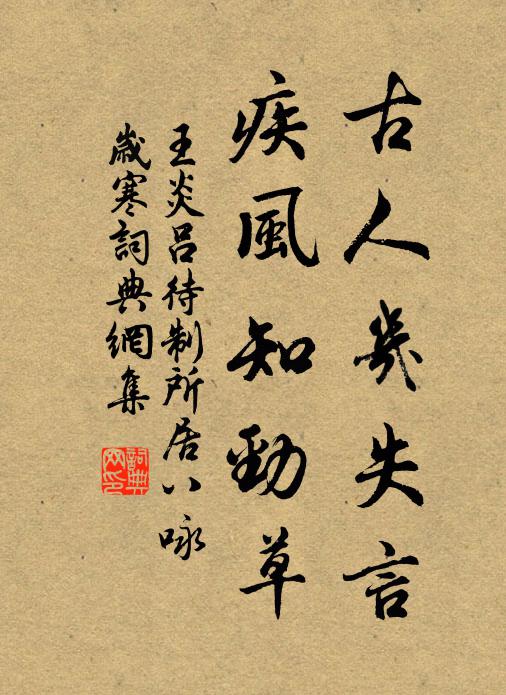 古人幾失言
疾風知勁草
王炎呂待制所居八咏
歲寒詞典網集
詞典網印